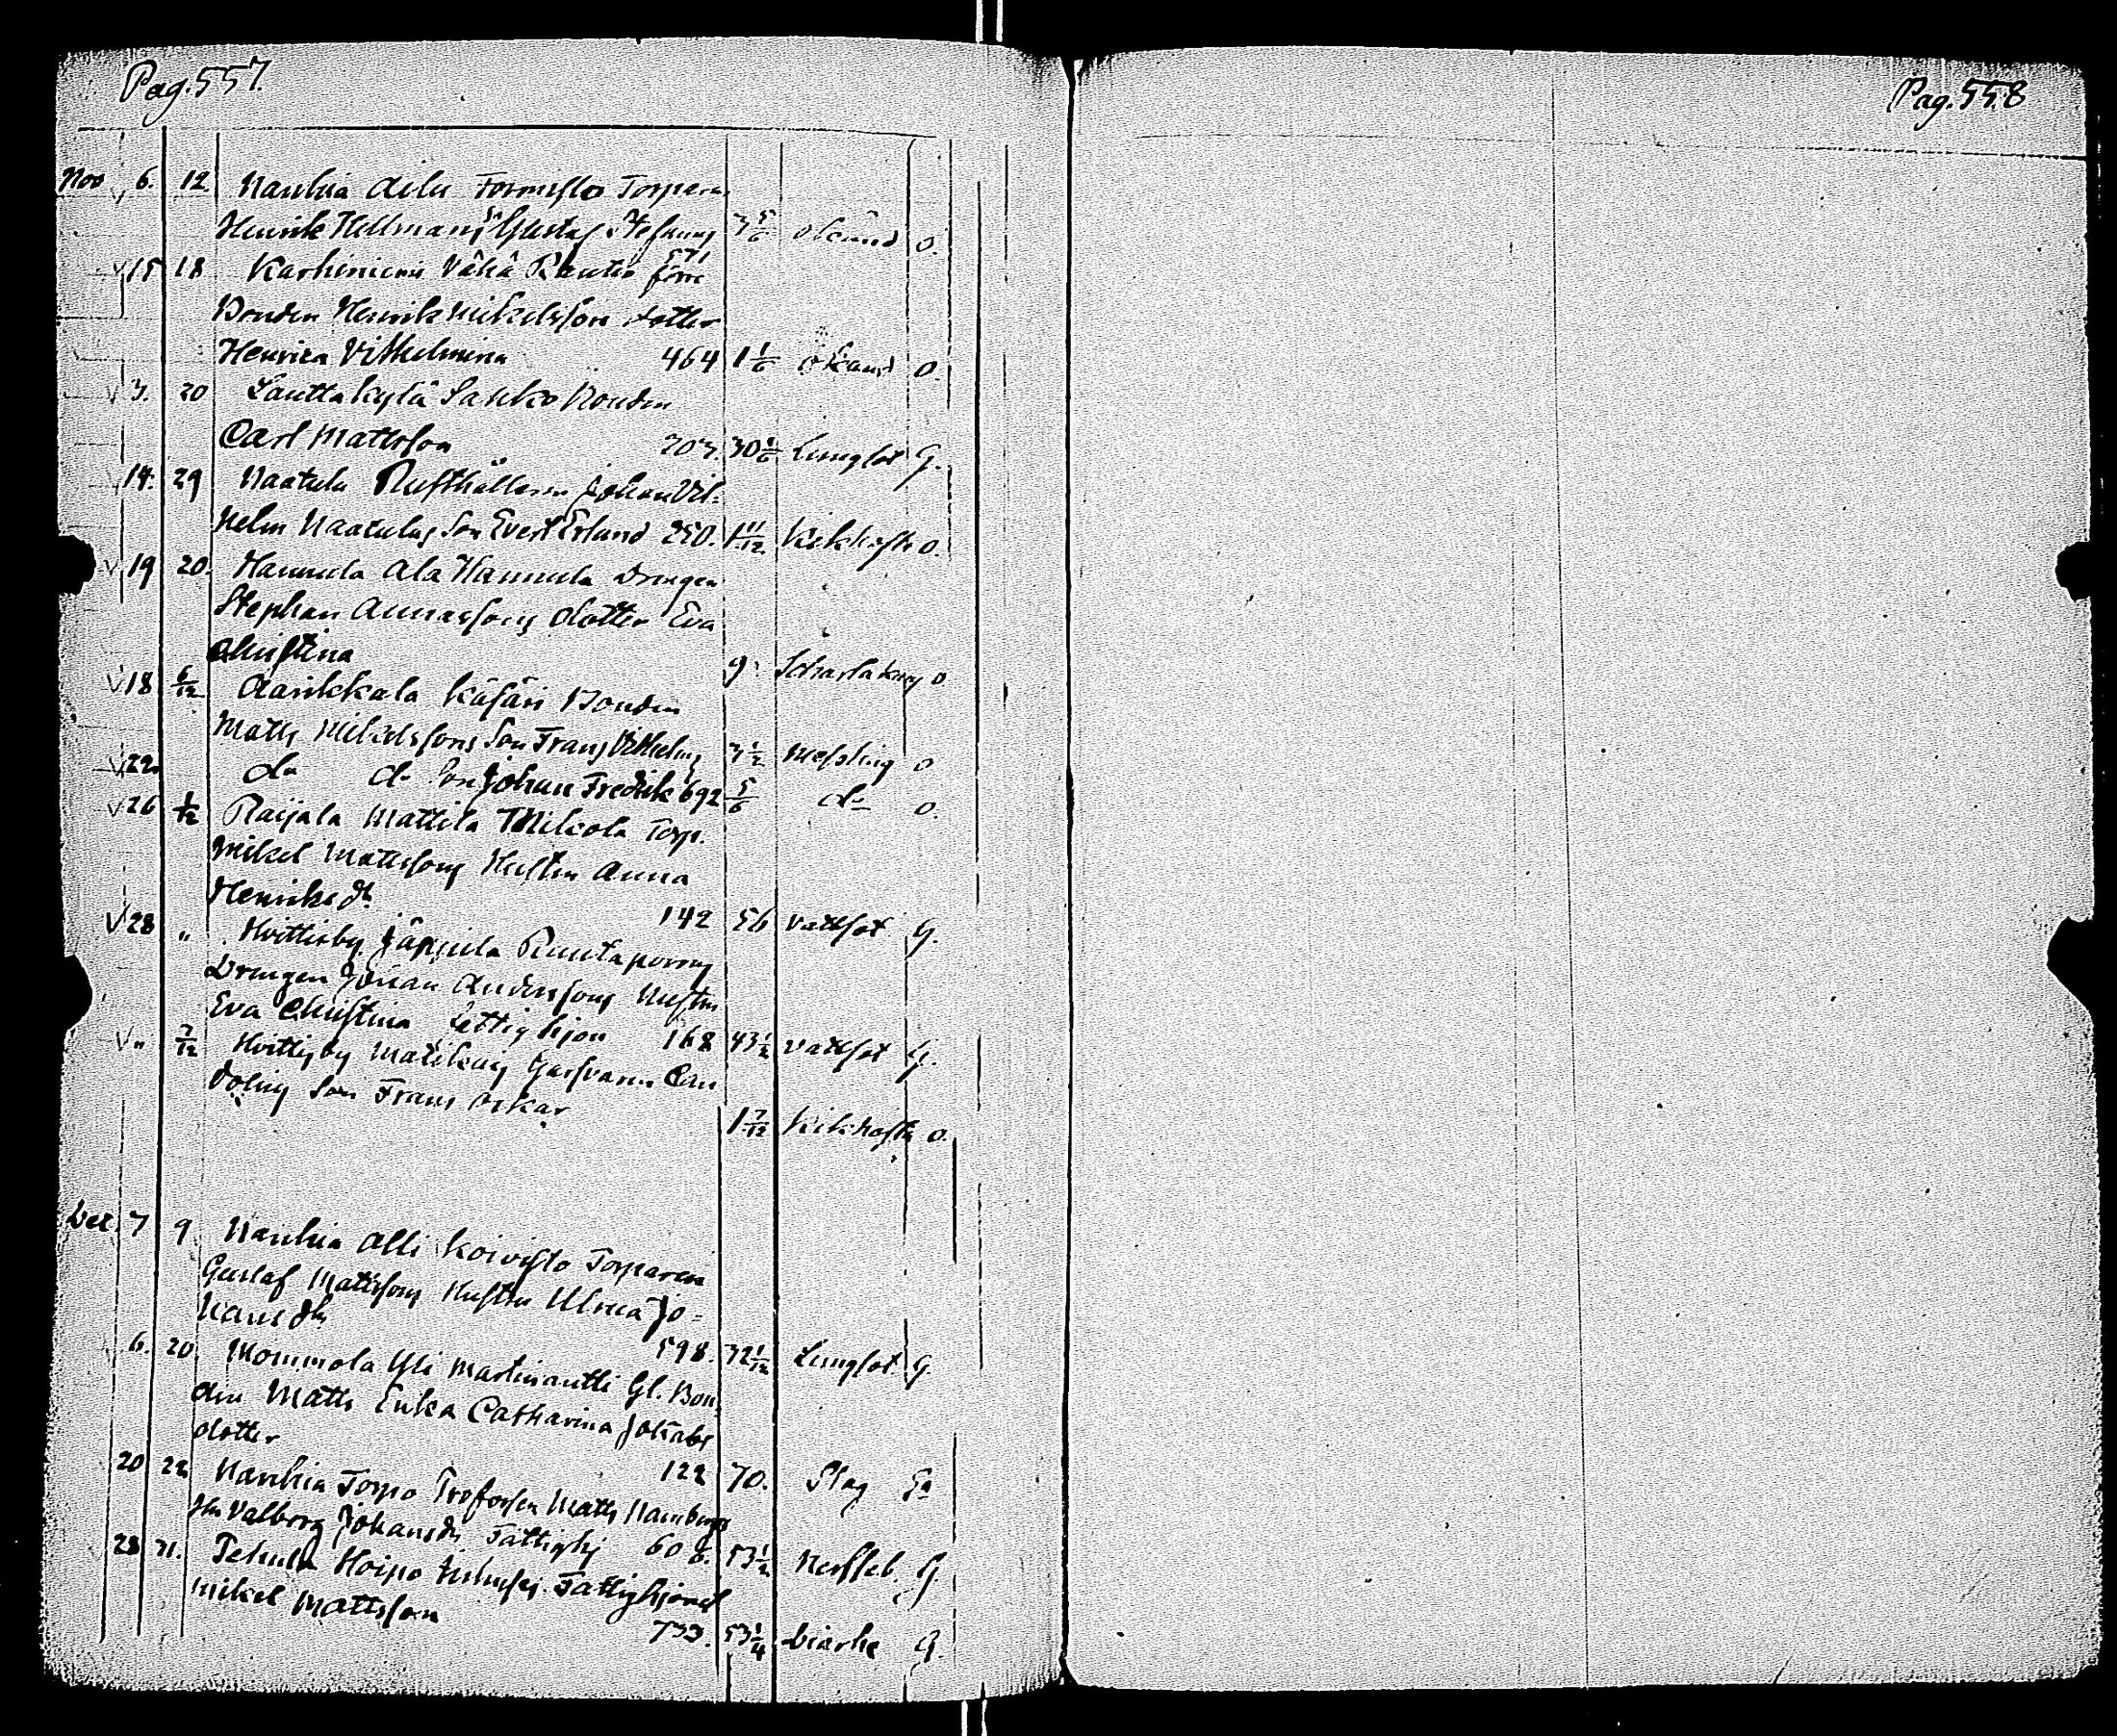 Pag. 557.
Nov 6. 12 Nanhia Aila Formisto Torparen
Henrik Hellmans Sn Gustaf Stefanus 571 3 5/6 okänd o.
15 18 Karhiniemi Vähä Rautio förre
Bonden Henrik Mikelsson dotter
Henrica Vilhelmina 464 1 1/6 okänd o.
3. 20 Lauttakylä Sauko Bonden
Carl Mattsson 203. 30 1/6 Lungsot G.
14. 29 Naatula Rusthållaren Johan Vil-
helm Naatulas Son Evert Erland 250. 1 11/12 Kikhosta o.
19 20. Hannula Ala Hannula Drengen
Stephan Annassons dotter Eva
Christina 9 Scharlakans o
18 6/12 Karikkala Käfäri Bonden
Matts Mikelssons Son Frans Vilhelm 3 1/2 Messling o
22. do do Son Johan Fredrik 692 5/6 do o.
26 1/12 Raijala Mattila Mikola Torp.
Mikel Mattssons Hustru Anna
Henriksdr 142 56 Vattsot G.
28 " Hvittisby Jäppilä Ruutaporras
Drengen Johan Anderssons Hustru
Eva Christina Fattighjon 168 43 1/2 Vattsot G.
" 7/12 Hvittisby Matikais Garfvaren Can
dolins Son Frans Oskar 1 7/12 Kikhosta o.
Dec. 7 9 Nanhia Alli Koivisto Torparen
Gustaf Mattssons Hustru Ulrica Jo-
hansdr 598. 32 1/12 Lungsot G.
6. 20 Mommola Yli Martinantti Gl. Bon-
den Matts Erika Catharina Jakobs
dotter 122 70. Slag Ea
20 22 Nanhia Torpo Profossen Matts Hambergs
Hu Valborg Johansdr Fattighj 608. 53 1/2 Nerffeb. G.
28 31. Tehula Hoipo Fattighjonet
Mikel Mattsson 733. 53 1/4 G.
Pag. 558